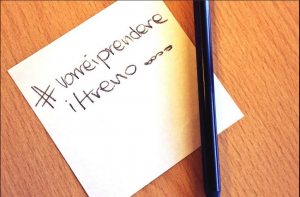 #vorreiprendere
iltreno...